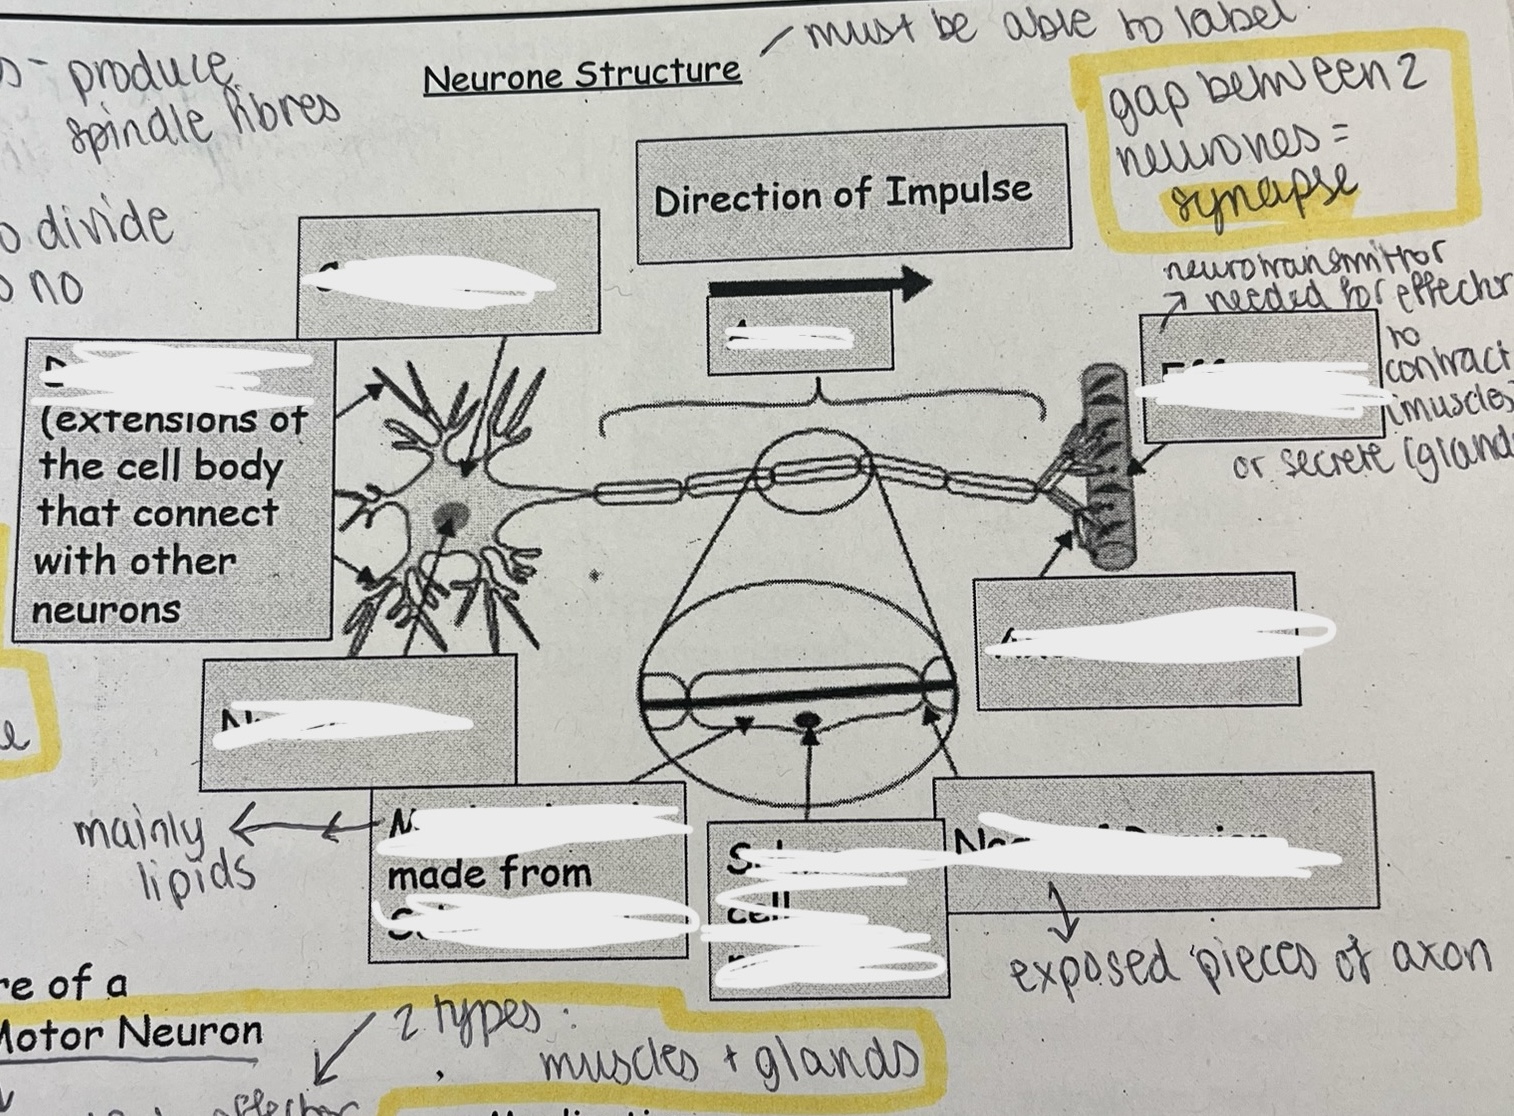 must be able to label
Neurone Structure
produce
spindle fibres
gap between 2
neurones =
synapse
Direction of Impulse
divide
no
neurotransmittor
needed for effector
to
contract
(muscles)
or secrete (gland
(extensions of
the cell body
that connect
with other
neurons
mainly
lipids
made from
cell
exposed pieces of axon
re of a
Motor Neuron
2 types:
muscles + glands
effector